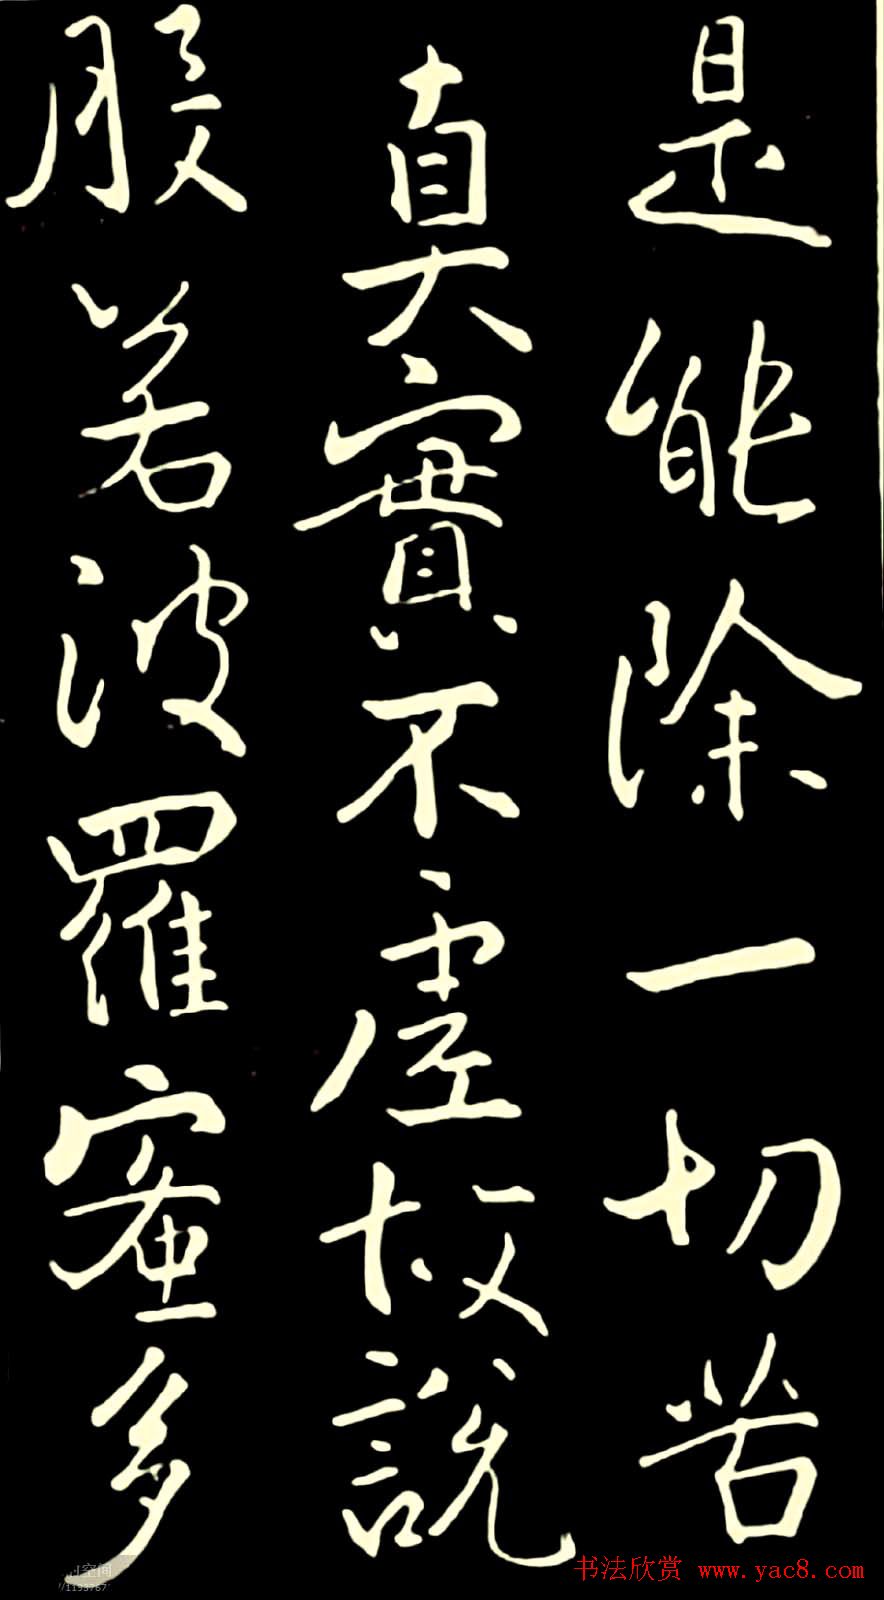 是能除一切苦
真實不虛故說
般若波羅蜜多
书法欣赏 www.yac8.com